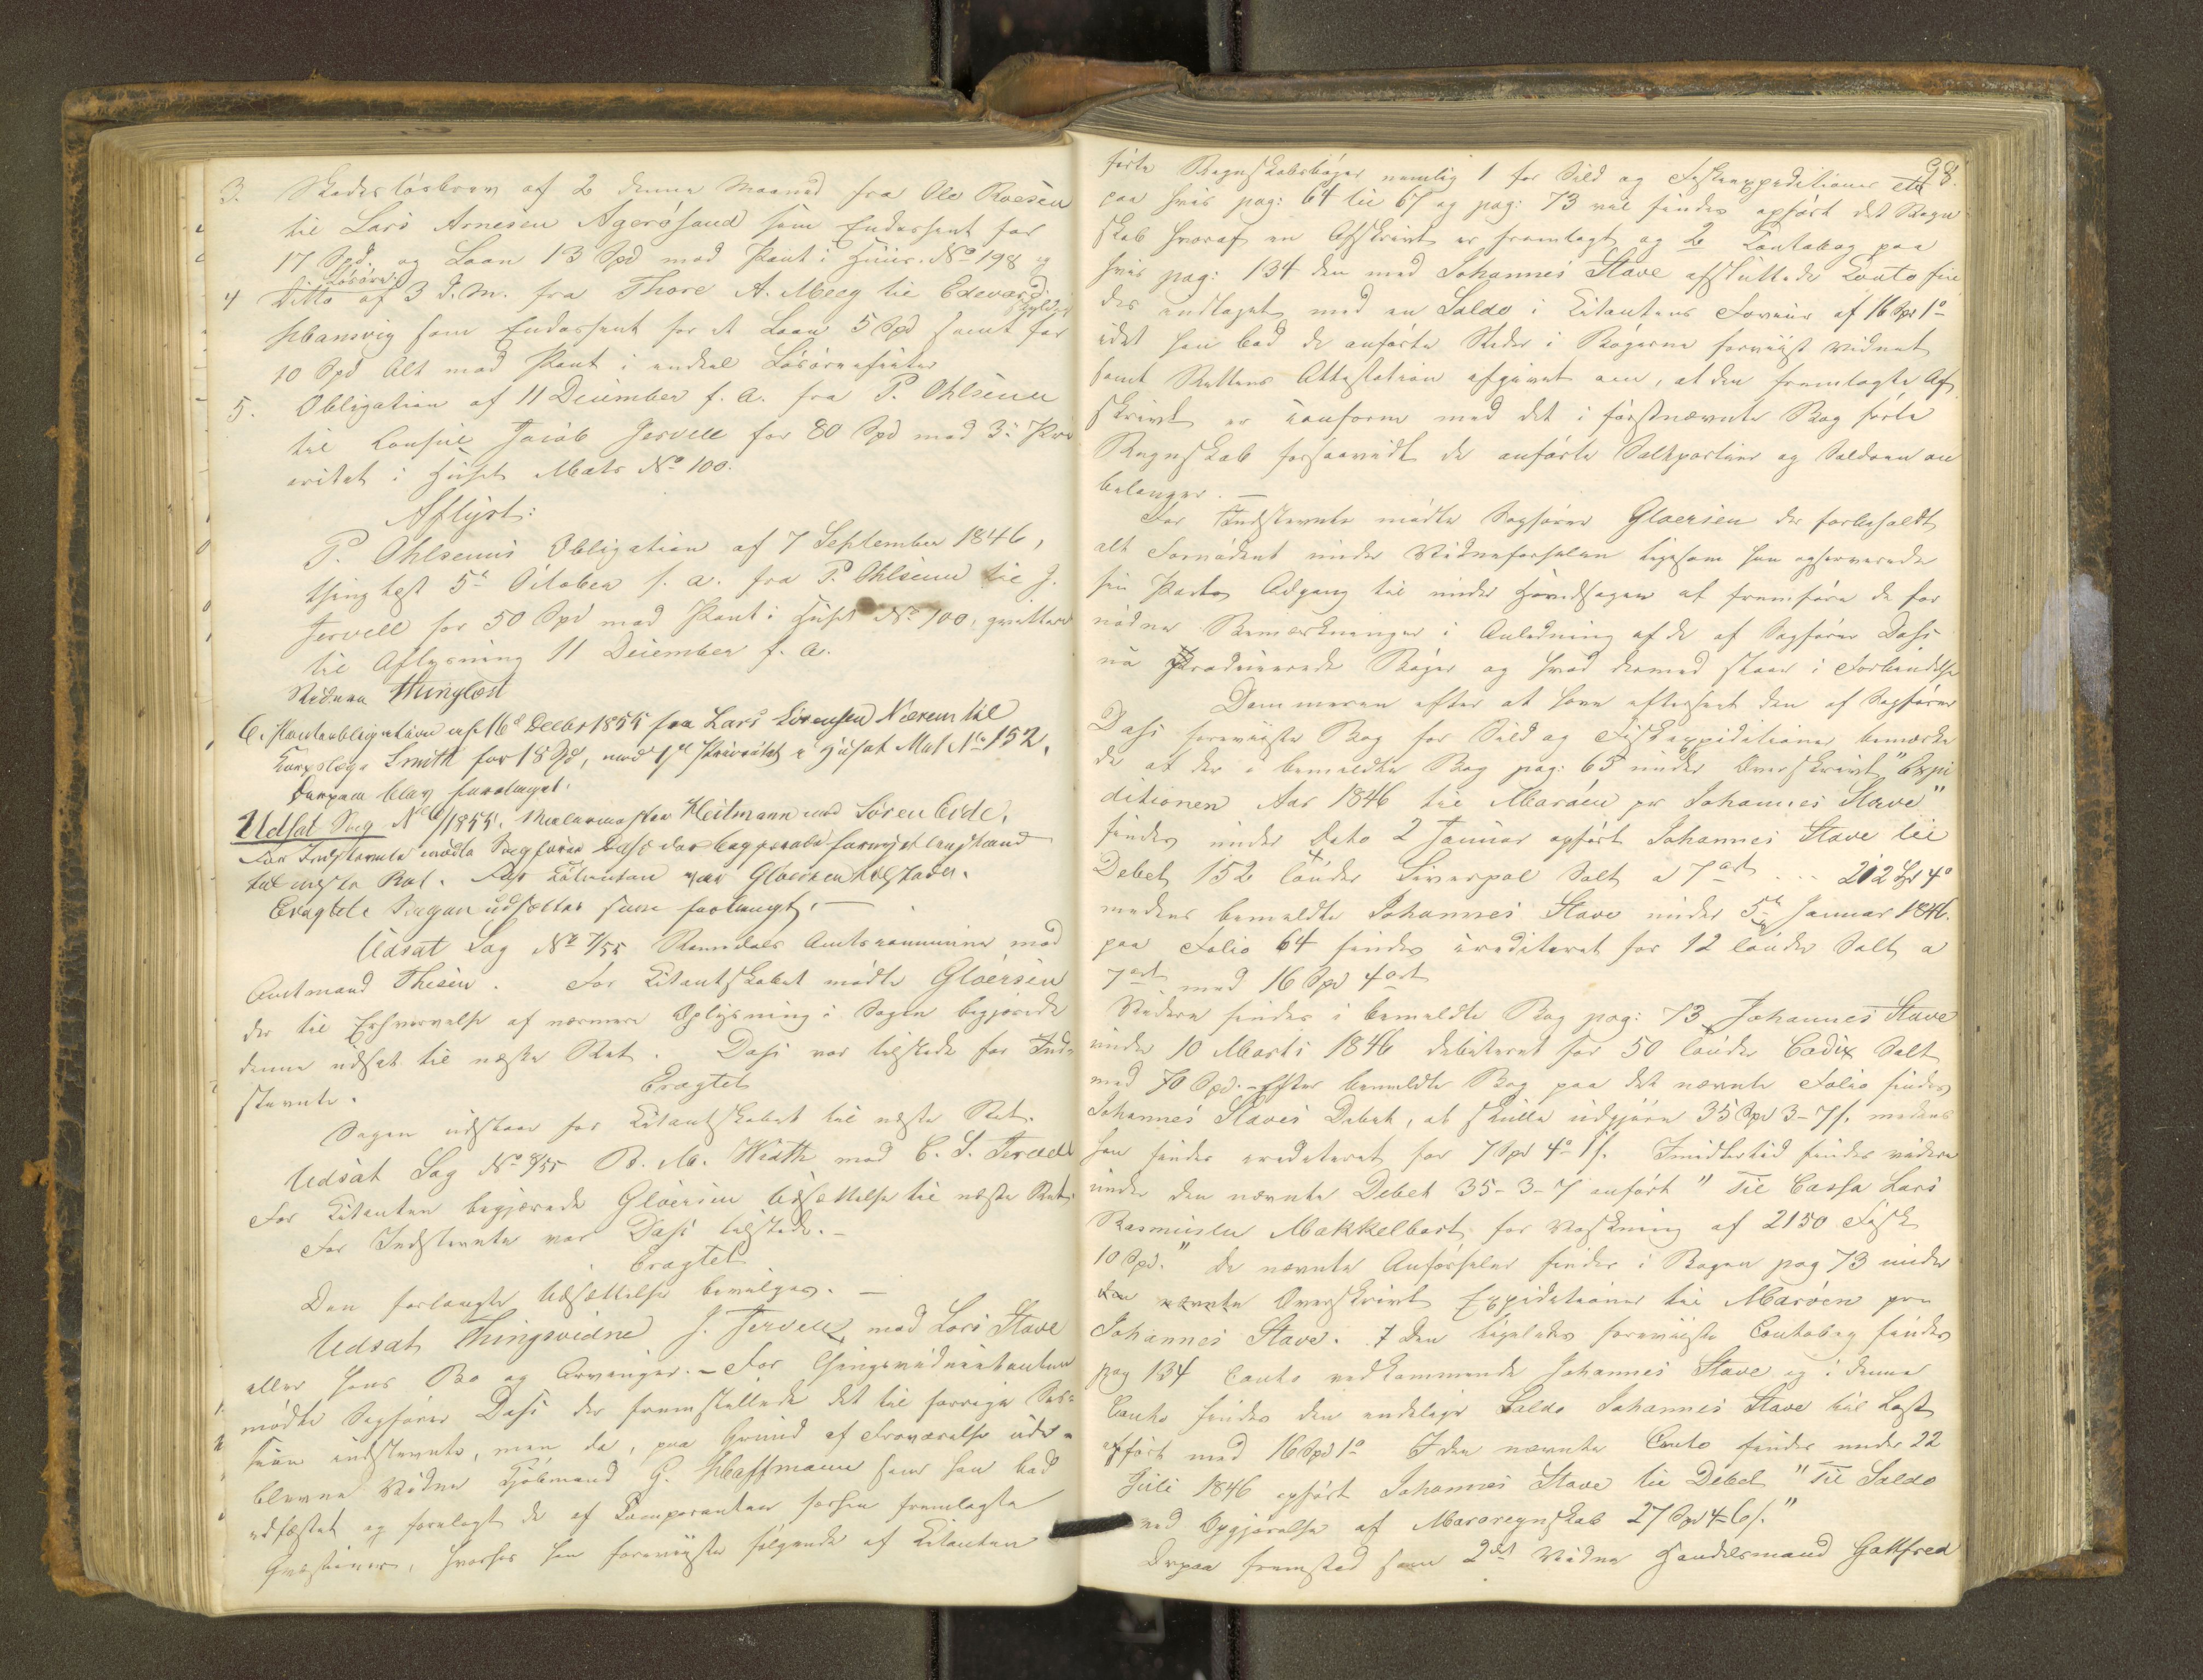 3. Skadesløsbrev af 2 denne Maaned fra Ole Roesen
til Lars Arnesen Agerøsand som Endossent for
17 Spd. og Laan 13 Spd mod Pant i Huus. No 198 og
Løsøre
4 Ditto af 3 d. M. fra Thore A. Meeg til Edevard
skyldig
som Endossent for et Laan 5 Spd samt for
10 Spd Alt mod Pant i endeel Løsøreeffecter
5. Obligation af 11 December f. A. fra P. Ohlsenn
til Consul Jacob Jervell for 80 Spd med 3die Pri
oritet i Huset Matr No 100.
Aflyst:
P. Ohlsenns Obligation af 7 September 1846,
thinglæst 5te October s. a. fra P. Ohlsenn til J.
Jervell for 50 Spd mod Pant i Huset No 100, qvitteret
til Aflysning 11 December f. A.
Videre Thinglæst
6. Panteobligation af 16de Decbr 1855 fra Lars Sørensen Nærem til
Corpslæge Smith for 18 Spd, mod 1ste Prioritet i Huset Mat No 152.
Derpaa blev foretaget:
Udsat Sag No 6/1855. Malermester Heitmann mod Søren Eide.
For Indstevnte mødte Sagfører Dahs der begjærede fornyet Anstand
til næste Ret. For Citanten var Gløersen tilstede.
Eragtet Sagen udsættes som forlangt. —
Udsat Sag No 7/55 Romsdals Amtscommune mod
Amtmand Thesen. For Citantskabet mødte Gløersen
der til Erhvervelse af nærmere Oplysning i Sagen begjærede
denne udsat til næste Ret. Dahs var tilstede for Ind-
stevnte.
Eragtet
Sagen udstaar for Citantskabet til næste Ret.
Udsat Sag No 8/55 B. M. Wath mod C. S. Jervell
For Citanten begjærede Gløersen Udsættelse til næste Ret.
For Indstevnte var Dahs tilstede. —
Eragtet
Den forlangte Udsættelse bevilges. —
Udsat Thingsvidne J. Jervell, mod Lars Stave
eller hans Bo og Arvinger. — For Thingsvidnecitanten
mødte Sagfører Dahs der fremstillede det til forrige Ses-
sion indstevnte, men da, paa Grund af Fraværelse ude-
blevne Vidne Kjøbmand G. Hoffmann som han bad
edfæstet og forelagt de af Comparenten forhen fremlagte
Qvæstioner, hvorhos han foreviiste følgende af Citanten
98.
førte Regnskabsbøger nemlig 1 for Sild og Fiskeexpeditioner etc
paa hvis pag: 64 til 67 og pag: 73 vil findes opført det Regn
skab hvoraf en Afskrivt er fremlagt og 2 Contobog paa
hvis pag: 134 den med Johannes Stave afsluttede Conto fin
des indtaget med en Saldo i Citantens Faveur af 16 Spd 1o
idet han bad de anførte Steder i Bøgerne foreviist Vidnet
samt Rettens Attestation afgivet om, at den fremlagte Af
skrivt er conform med det i førstnævnte Bog førte
Regnskab forsaavidt de anførte Saltpartier og Saldoen an
belanger. —
For Indstevnte mødte Sagfører Gløersen der forbeholdt
alt Fornødent under Vidneførselen ligesom han reserverede
sin Part Adgang til under Hovedsagen at fremføre de for
nødne Bemærkninger i Anledning af de af Sagfører Dahs
nu producerede Bøger og hvad dermed staar i Forbindelse
Dommeren efter at have efterseet den af Sagfører
Dahs foreviiste Bog for Sild og Fiskexpeditioner bemærke
de at der i bemeldte Bog pag: 65 under Overskrivt "Expe
ditionen Aar 1846 til Marøen pr Johannes Stave"
findes under Dato 2 Januar opført Johannes Stave til
Debet 152 tønder Liverpol Salt a 7 ort ... 212 Spd 4o
medens bemeldte Johannes Stave under 5te Januar 1846.
paa Folio 64 findes crediteret for 12 tønder Salt a
7 ort med 16 Spd 4 ort
Videre findes i bemeldte Bog pag: 73 Johannes Stave
under 10 Marts 1846 debiteret for 50 tønder Cadix Salt
med 70 Spd. — Efter bemeldte Bog paa det nævnte Folio findes
Johannes Staves Debet, at skulle udgjøre 35 Spd 3-7 s. medens
han findes crediteret for 7 Spd 4o 1 s. Imidlertid findes videre
under den nævnte Debet 35-3-7 anført "Til Cassa Lars
Rasmussen Makkelbost for Vaskning af 2150 Fisk
10 Spd." De nævnte Anførseler findes i Bogen pag 73 under
den nævnte Overskrivt Expeditioner til Marøen pr
Johannes Stave. I den ligeledes foreviiste Contobog findes
pag 134 Conto vedkommende Johannes Stave og i denne
Conto findes den endelige Saldo Johannes Stave til Last
opført med 16 Spd 1o I den nævnte Conto findes under 22
Juli 1846 opført Johannes Stave til Debet "Til Saldo
ved Opgjørelse af Marøregnskab 27 Spd 4-6 s."
Derpaa fremstod som 2det Vidne Handelsmand Gottfred